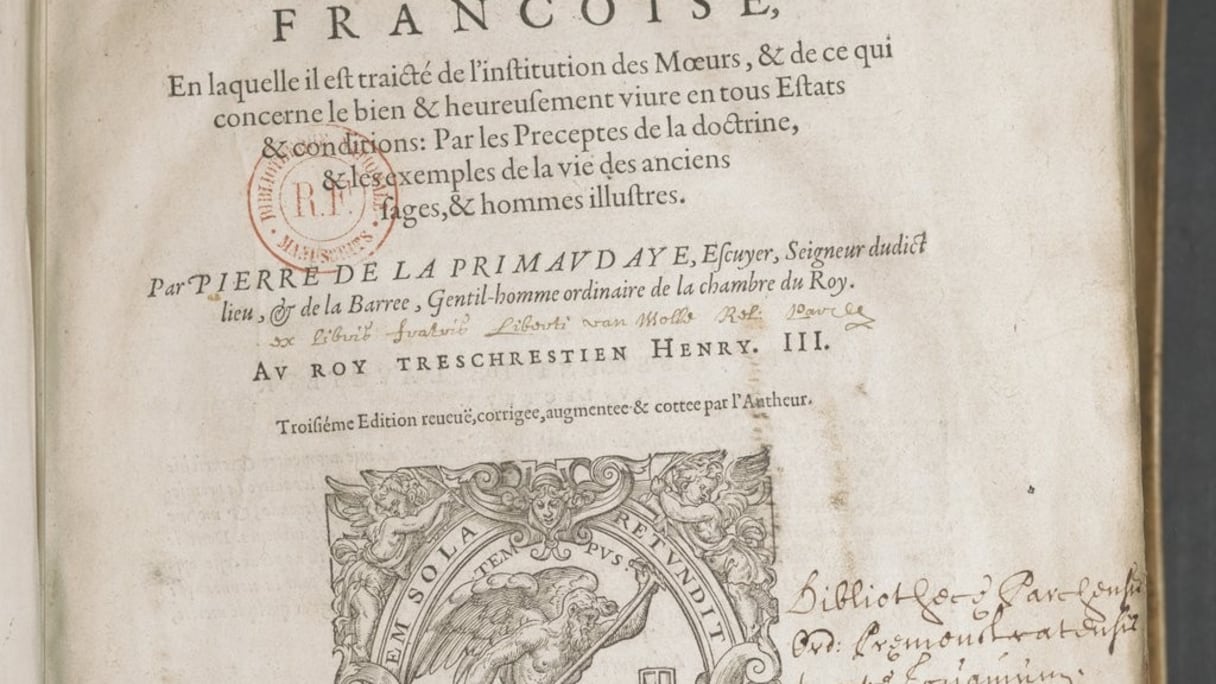 FRANCOISE,
En laquelle il eſt traicté de l'inſtitution des Mœurs, & de ce qui
concerne le bien & heureuſement viure en tous Eſtats
& conditions: Par les Preceptes de la doctrine,
& les exemples de la vie des anciens
ſages, & hommes illuſtres.
BIBLIOTHEQUE NATIONALE
R.F.
MANUSCRITS
Par PIERRE DE LA PRIMAVDAYE, Eſcuyer, Seigneur dudict
lieu, & de la Barree, Gentil-homme ordinaire de la chambre du Roy.
ex libris fratris Liberti van Molle Rel: Parcen
AV ROY TRESCHRESTIEN HENRY. III.
Troiſiéme Edition reueuë, corrigee, augmentee & cottee par l'Autheur.
EM SOLA RETVNDIT
TEMPVS
Bibliothecę Parchenſis
Ord: Præmonſtratenſis